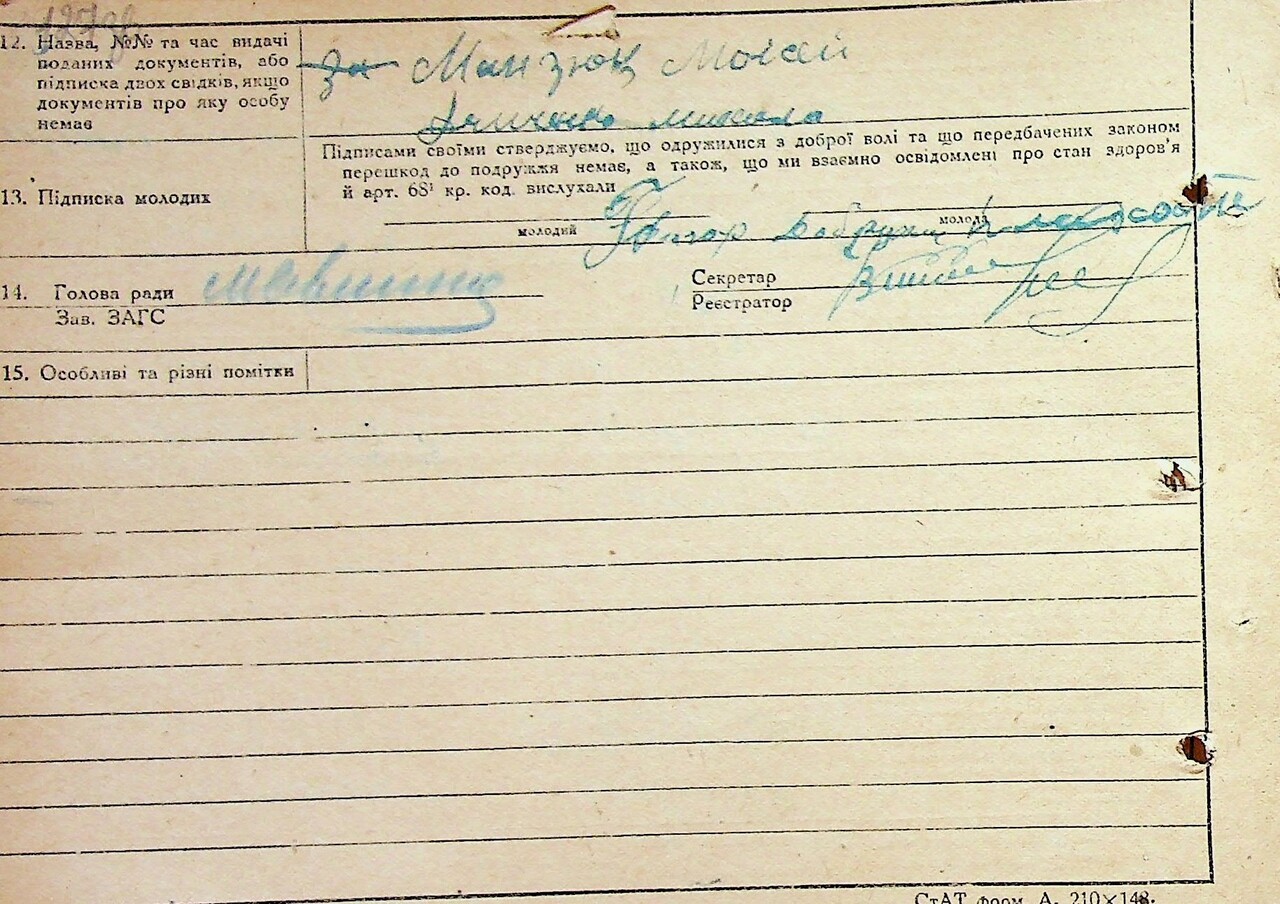 12. Назва, №№ та час видачі
поданих документів, або
підписка двох свідків, якщо
документів про яку особу
немає
за Манзюк Мокей
Микола
Підписами своїми стверджуємо, що одружилися з доброї волі та що передбачених законом
перешкод до подружжя немає, а також, що ми взаємно освідомлені про стан здоров'я
й арт. 68¹ кр. код. вислухали
13. Підписка молодих
молодий
молода
14. Голова ради
Зав. ЗАГС
Секретар
Реєстратор
15. Особливі та різні помітки
СтАТ форм. А. 210×148.